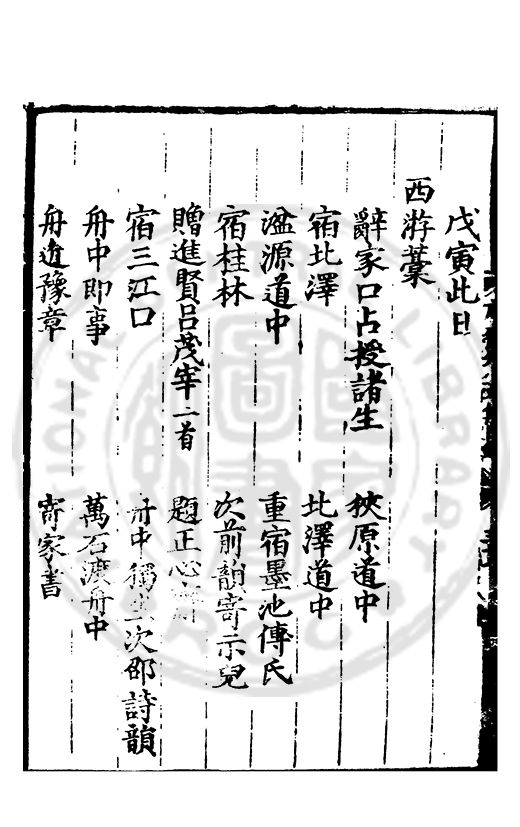 戊寅此日
西游藁
辭家口占授諸生　狹原道中
宿北澤　北澤道中
溫源道中　重宿墨池傅氏
宿桂林　次前韻寄示兒
贈進賢呂茂宰二首　題正心
宿三江口　舟中獨坐次邵詩韻
舟中即事　萬石渡舟中
舟近豫章　寄家書